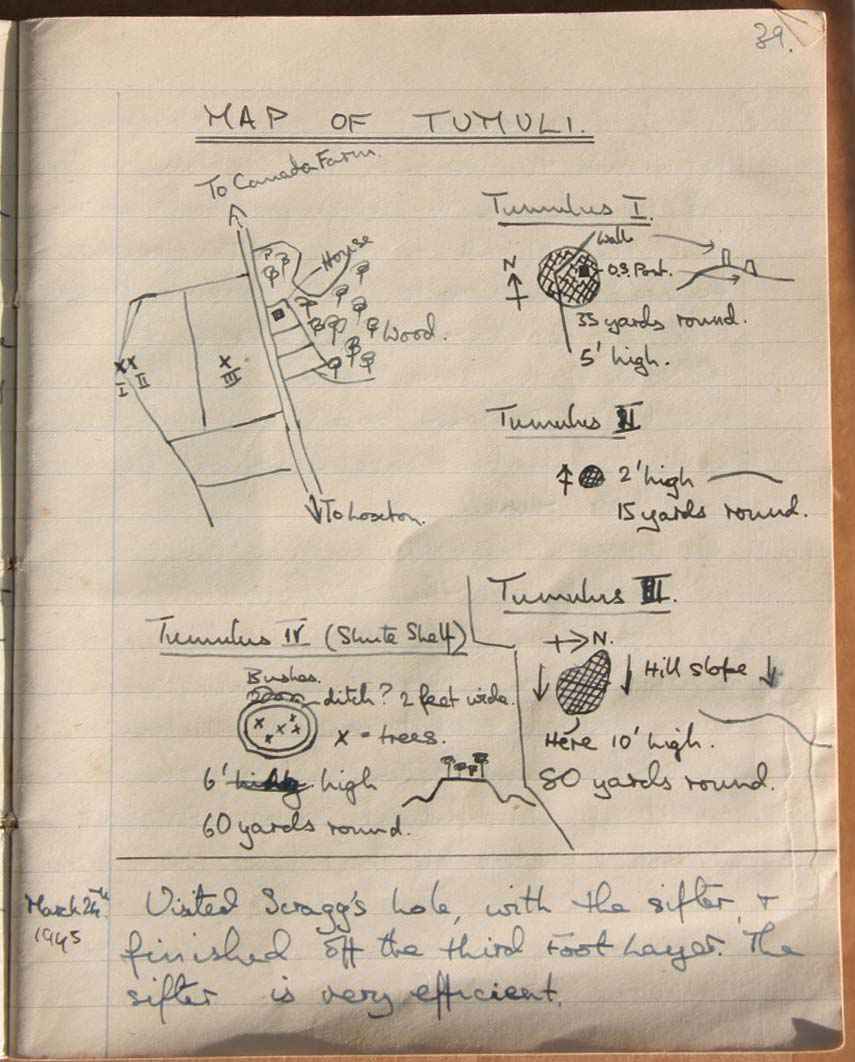 39.
MAP OF TUMULI.
To Canada Farm.
House
Wood.
I
II
III
To Loxton.
Tumulus I.
Wall
N
O.S. Post.
35 yards round.
5' high.
Tumulus II
2' high
15 yards round.
Tumulus III.
N.
Hill slope
Here 10' high.
80 yards round.
Tumulus IV (Shute Shelf)
Bushes.
ditch? 2 feet wide.
x = trees.
6' high
60 yards round.
March 24th
1945
Visited Scragg's hole, with the sifter, +
finished off the third Foot Layer. The
sifter is very efficient.